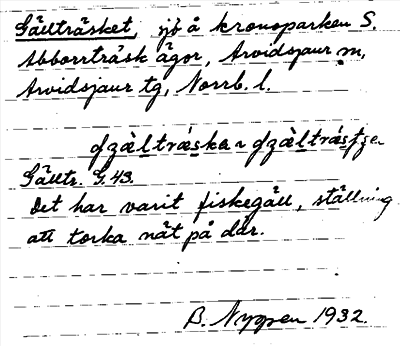 Gällträsket, sjö å kronoparken S.
Abborrträsk ägor, Arvidsjaur sn,
Arvidsjaur tg, Norrb. l.
Gälltr. G. 43.
Det har varit fiskegäll, ställning
att torka nät på där.
B. Nygren 1932.